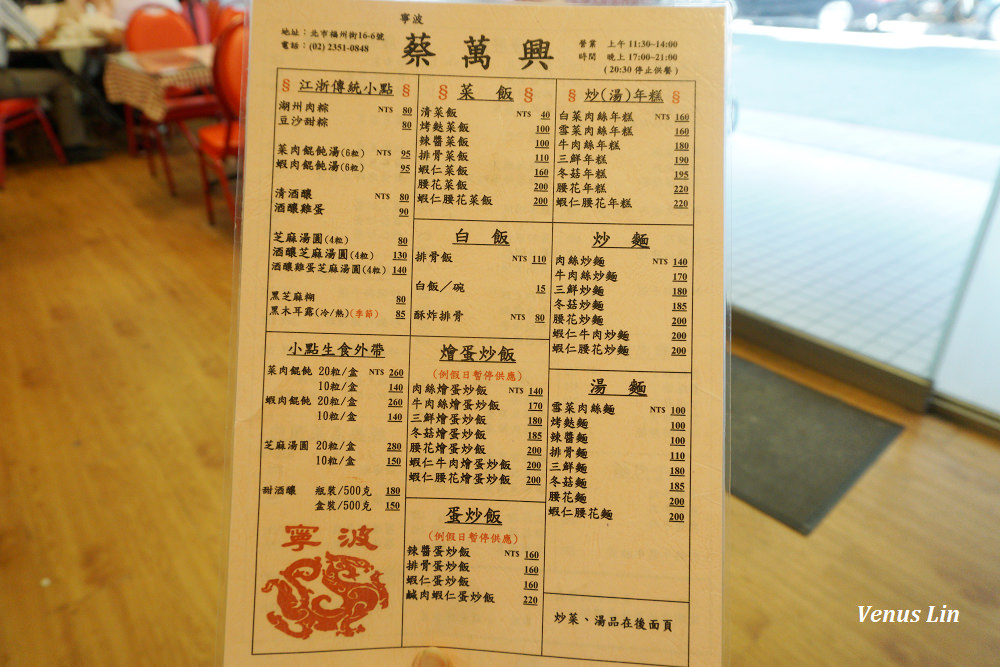 寧波
蔡萬興
地址：北市福州街16-6號
電話：(02) 2351-0848
營業 上午 11:30~14:00
時間 晚上 17:00~21:00
(20:30 停止供餐)
§ 江浙傳統小點 §
湖州肉粽 NT$ 80
豆沙甜粽 80
菜肉餛飩湯(6粒) NT$ 95
蝦肉餛飩湯(6粒) 95
清酒釀 NT$ 80
酒釀雞蛋 90
芝麻湯圓(4粒) 80
酒釀芝麻湯圓(4粒) 130
酒釀雞蛋芝麻湯圓(4粒) 140
黑芝麻糊 80
黑木耳露(冷/熱)(季節) 85
小點生食外帶
菜肉餛飩 20粒/盒 NT$ 260
10粒/盒 140
蝦肉餛飩 20粒/盒 260
10粒/盒 140
芝麻湯圓 20粒/盒 280
10粒/盒 150
甜酒釀 瓶裝/500克 180
盒裝/500克 150
寧波
§ 菜飯 §
清菜飯 NT$ 40
烤麩菜飯 100
辣醬菜飯 100
排骨菜飯 110
蝦仁菜飯 160
腰花菜飯 200
蝦仁腰花菜飯 200
白飯
排骨飯 NT$ 110
白飯／碗 15
酥炸排骨 NT$ 80
燴蛋炒飯
(例假日暫停供應)
肉絲燴蛋炒飯 NT$ 140
牛肉絲燴蛋炒飯 170
三鮮燴蛋炒飯 180
冬菇燴蛋炒飯 185
腰花燴蛋炒飯 200
蝦仁牛肉燴蛋炒飯 200
蝦仁腰花燴蛋炒飯 200
蛋炒飯
(例假日暫停供應)
辣醬蛋炒飯 NT$ 160
排骨蛋炒飯 160
蝦仁蛋炒飯 160
鹹肉蝦仁蛋炒飯 220
§ 炒(湯)年糕 §
白菜肉絲年糕 NT$ 160
雪菜肉絲年糕 160
牛肉絲年糕 180
三鮮年糕 190
冬菇年糕 195
腰花年糕 220
蝦仁腰花年糕 220
炒麵
肉絲炒麵 NT$ 140
牛肉絲炒麵 170
三鮮炒麵 180
冬菇炒麵 185
腰花炒麵 200
蝦仁牛肉炒麵 200
蝦仁腰花炒麵 200
湯麵
雪菜肉絲麵 NT$ 100
烤麩麵 100
辣醬麵 100
排骨麵 110
三鮮麵 180
冬菇麵 185
腰花麵 200
蝦仁腰花麵 200
炒菜、湯品在後面頁
Venus Lin